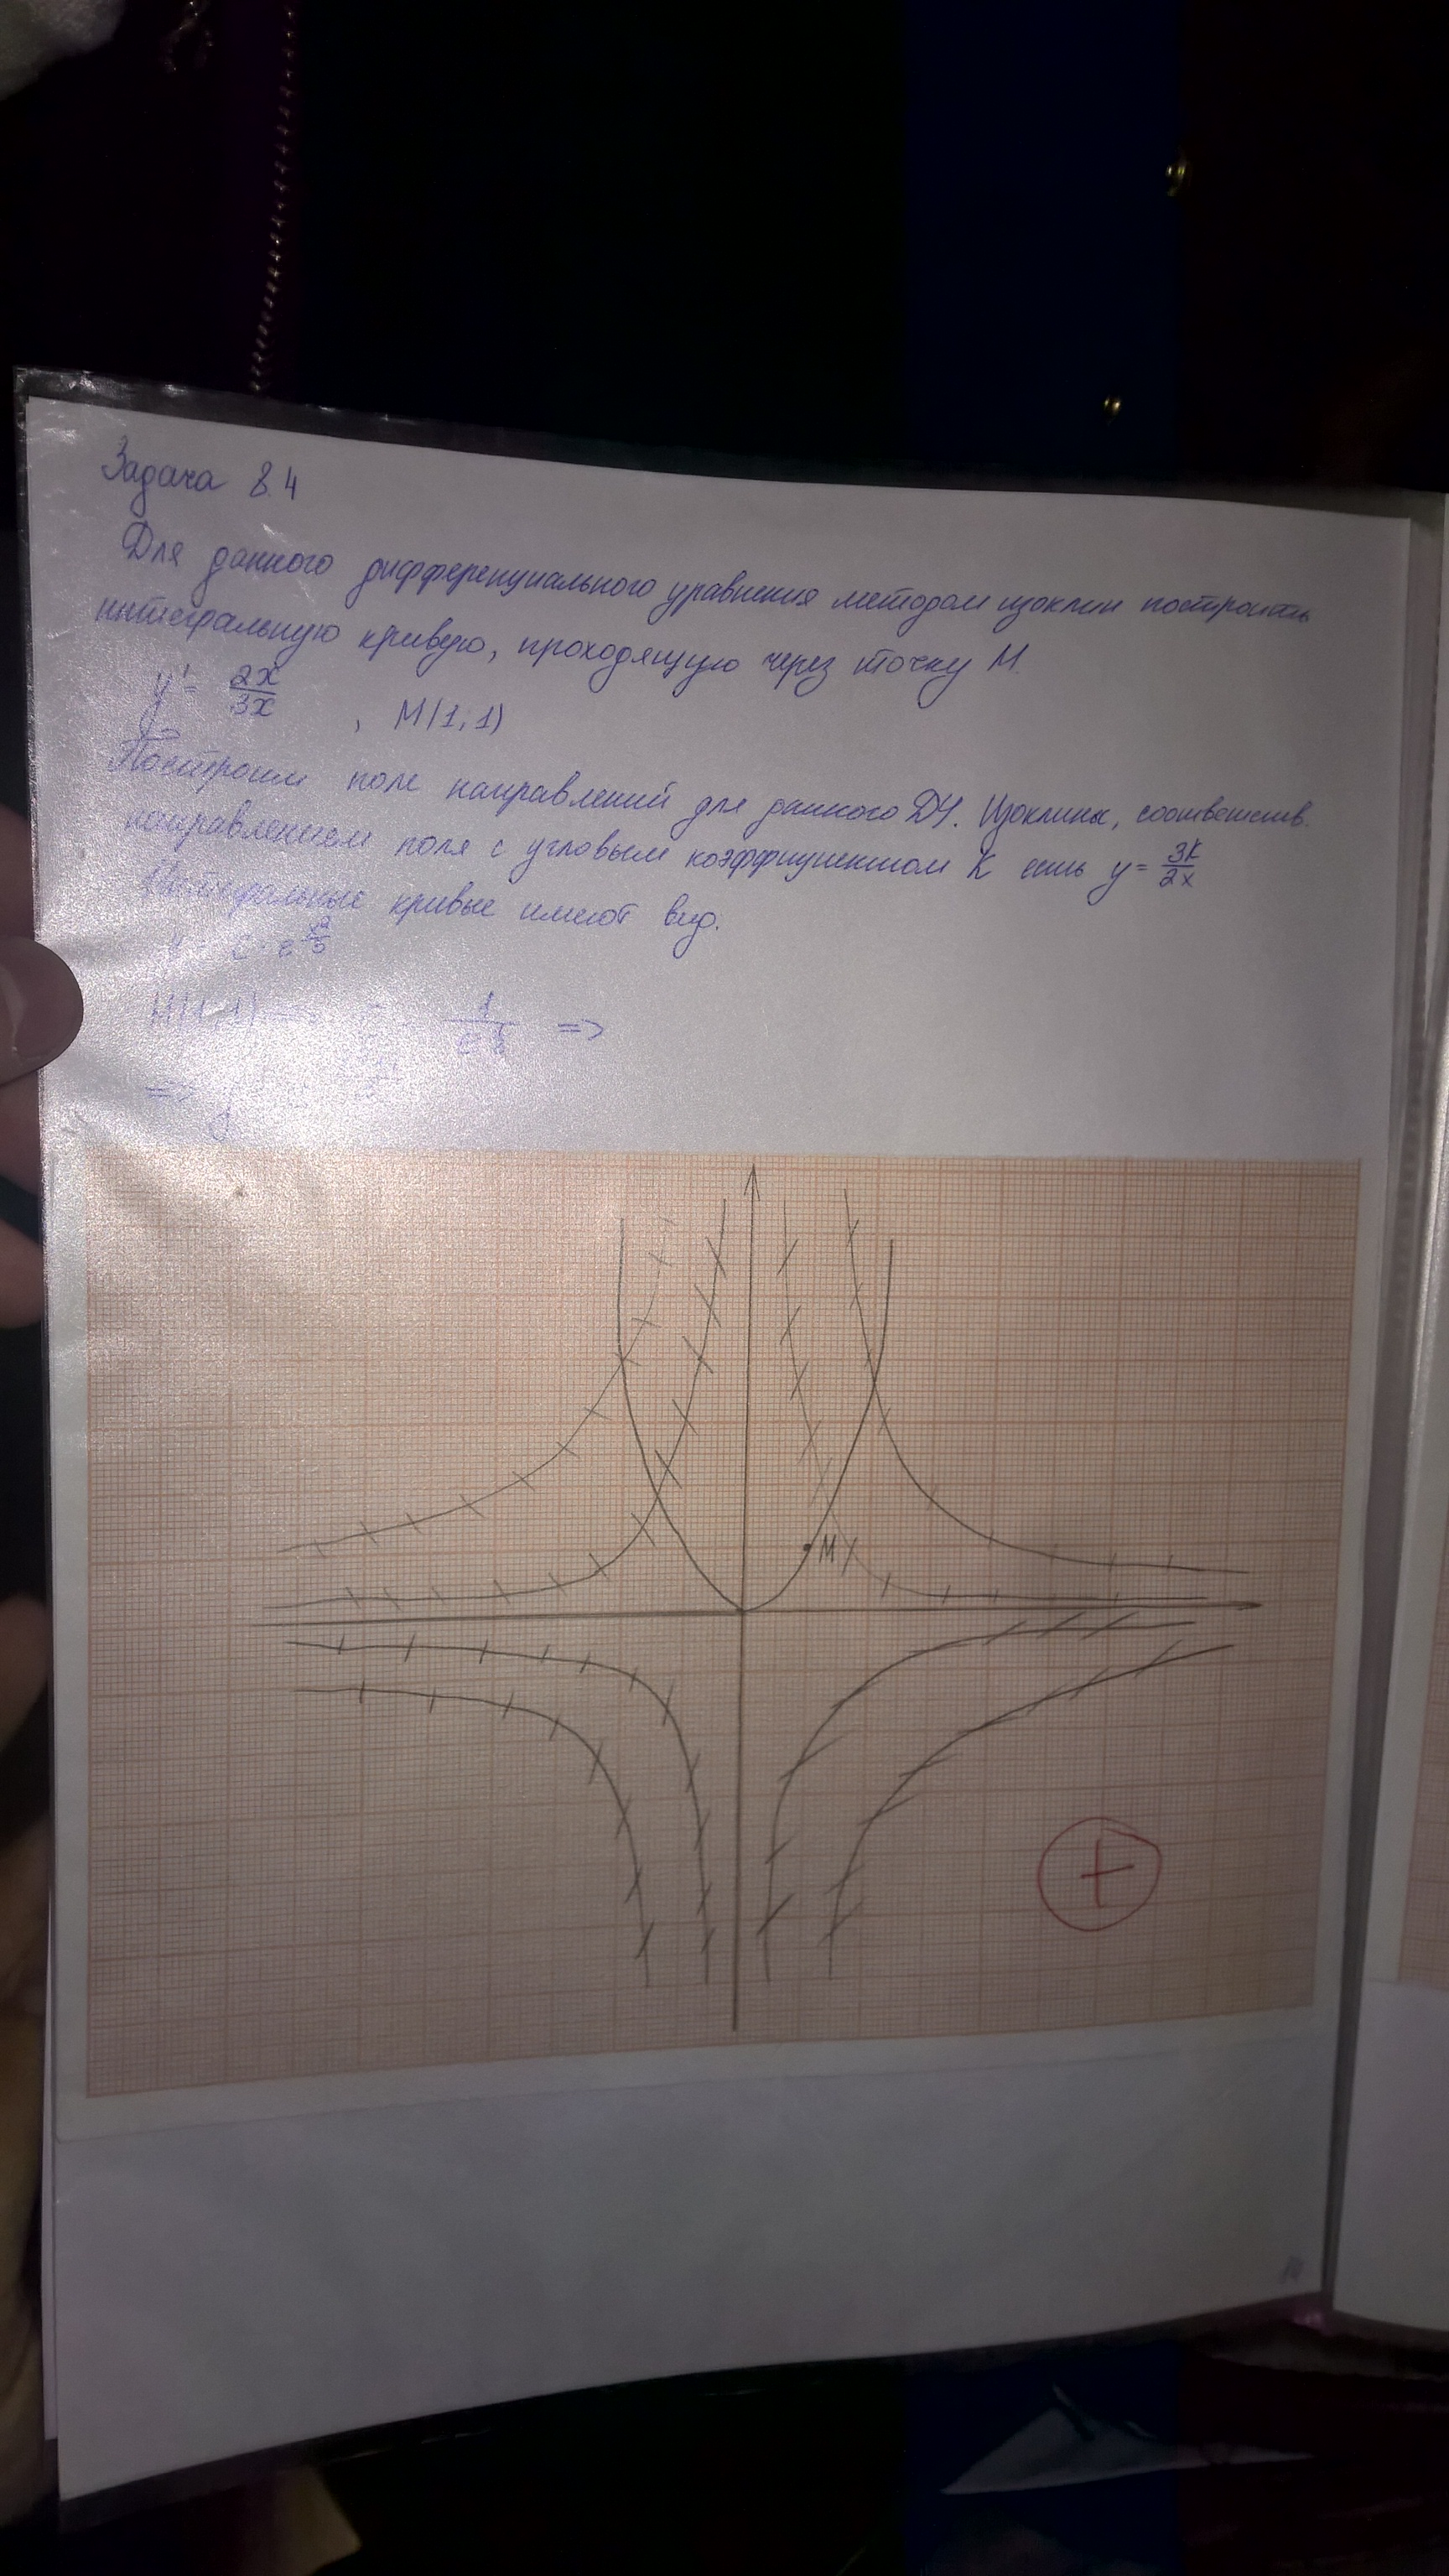 Задача 8.4
Для данного дифференциального уравнения методом изоклин построить
интегральную кривую, проходящую через точку М.
y' = 2x/3x , M(1; 1)
Построим поле направлений для данного ДУ. Изоклины, соответств.
направлениям поля с угловым коэффициентом K есть y = 3k/2x
Интегральные кривые имеют вид.
y = c · e^
M(1, 1) 1 =>
=> y
M
+